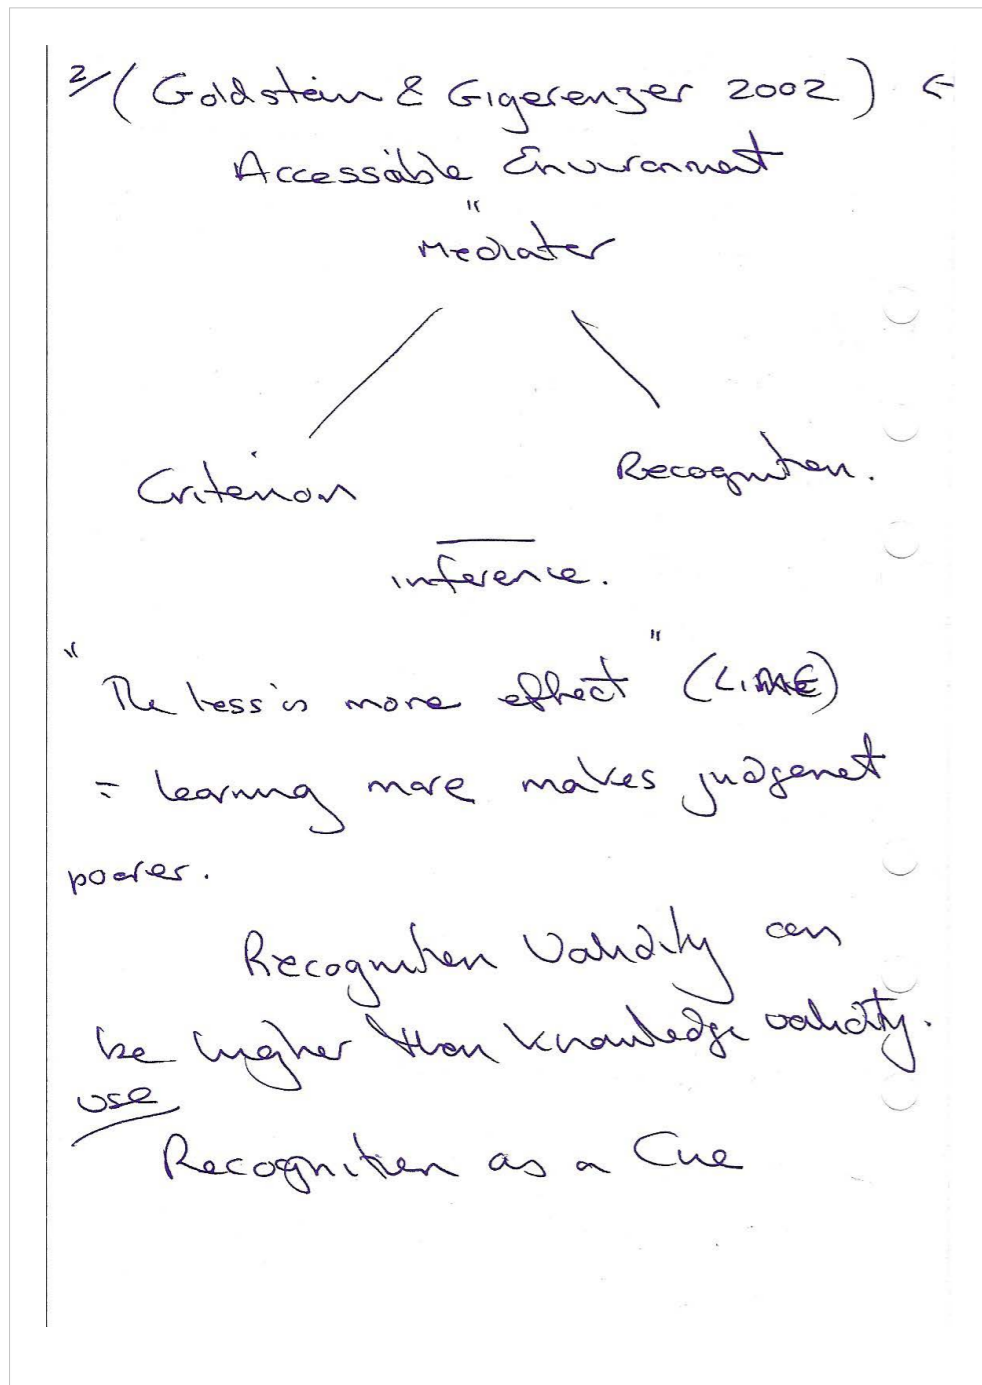 2/ (Goldstein & Gigerenzer 2002) ←
Accessible Environment
"
Mediater
Criterion
Recognition.
inference.
"The less is more effect" (LIME)
= learning more makes judgenet
poorer.
Recognition Validity can
be higher than knowledge validity.
use
Recognition as a Cue